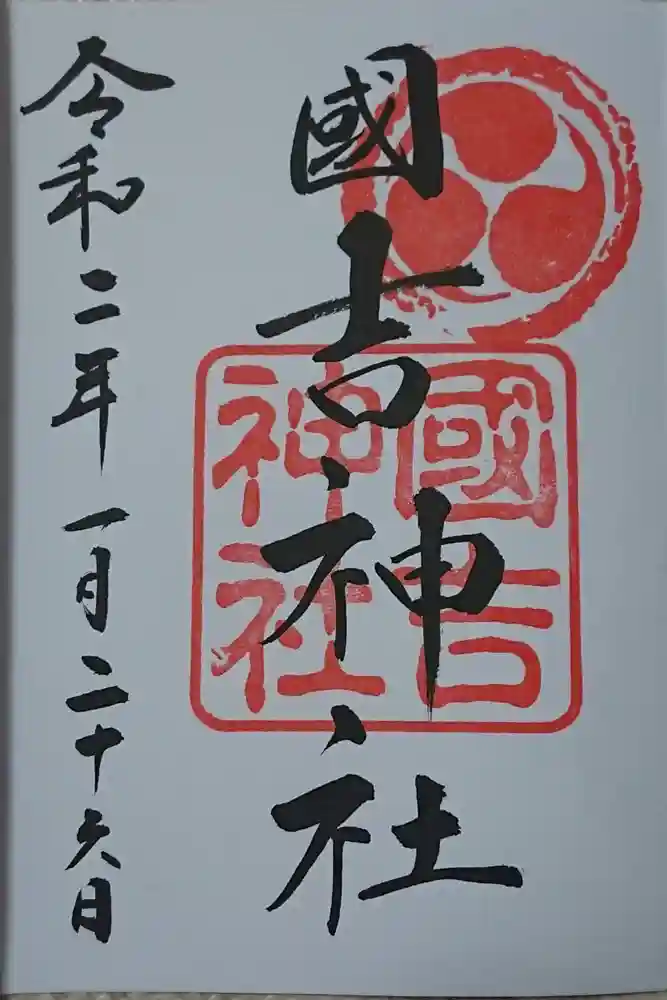 國吉神社
國吉
神社
令和二年一月二十六日